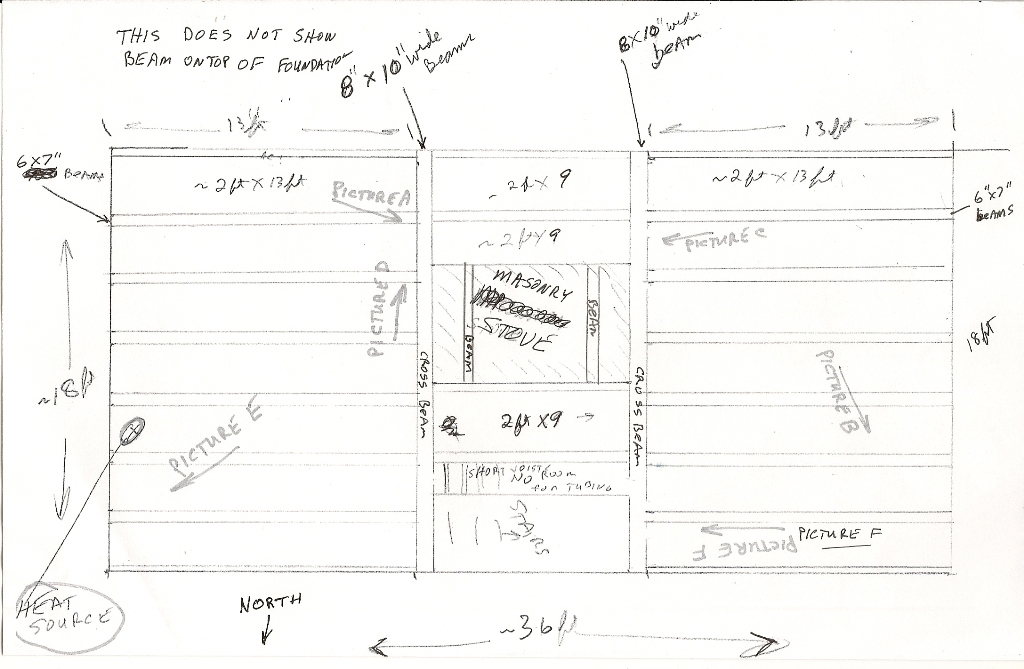 THIS DOES NOT SHOW
BEAM ON TOP OF FOUNDATION
8" X 10" wide
Beams
8X10" wide
beam
13ft
13ft
6X7"
BEAMS
~ 2ft X 13ft
PICTURE A
~ 2ft X 9
~2ft X 13ft
6"X7"
BEAMS
~ 2ft X 9
PICTURE C
PICTURE D
MASONRY
STOVE
BEAM
BEAM
~18ft
18ft
CROSS BEAM
CROSS BEAM
PICTURE B
PICTURE E
2ft X 9
SHORT JOIST
NO ROOM
FOR TUBING
STAIRS
PICTURE F
PICTURE F
HEAT
SOURCE
NORTH
~36ft